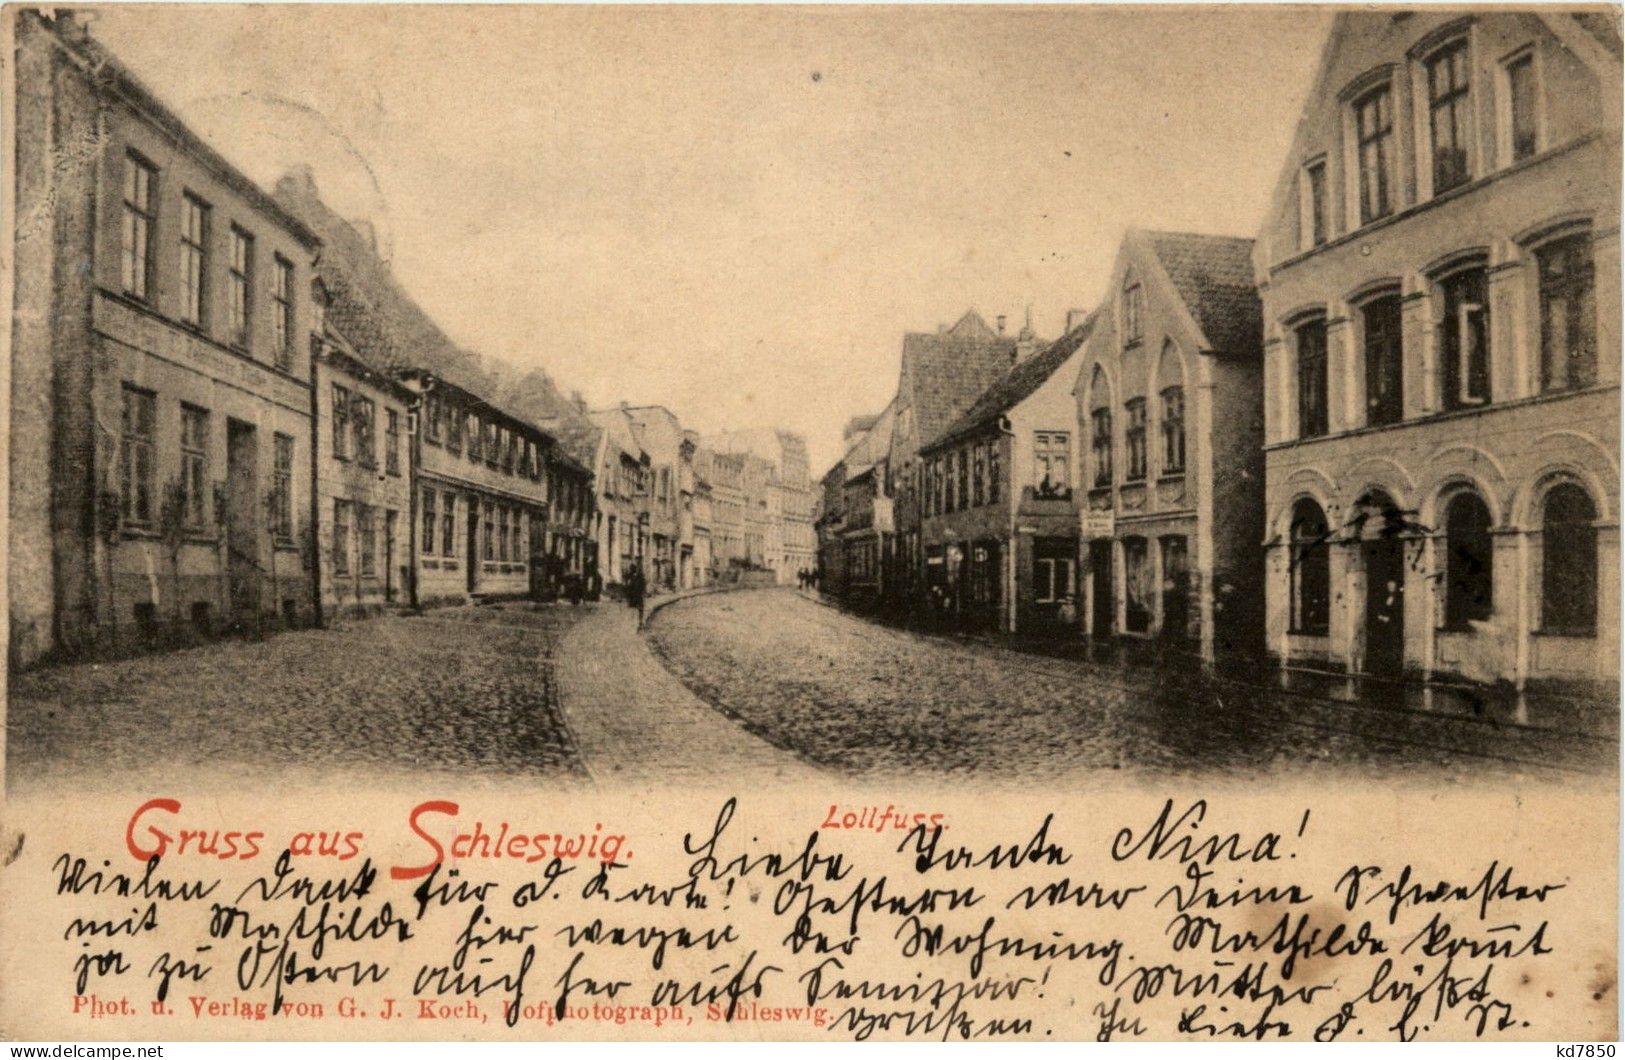 Gruss aus Schleswig.
Lollfuss.
Liebe Tante Nina!
Vielen Dank für d. Karte! Gestern war Deine Schwester
mit Mathilde hier wegen der Wohnung. Mathilde kom̄t
ja zu Ostern auch her aufs Seminar! Mutter läßt
grüßen. In Liebe d. l. St.
Phot. u. Verlag von G. J. Koch, Hofphotograph, Schleswig.
kd7850